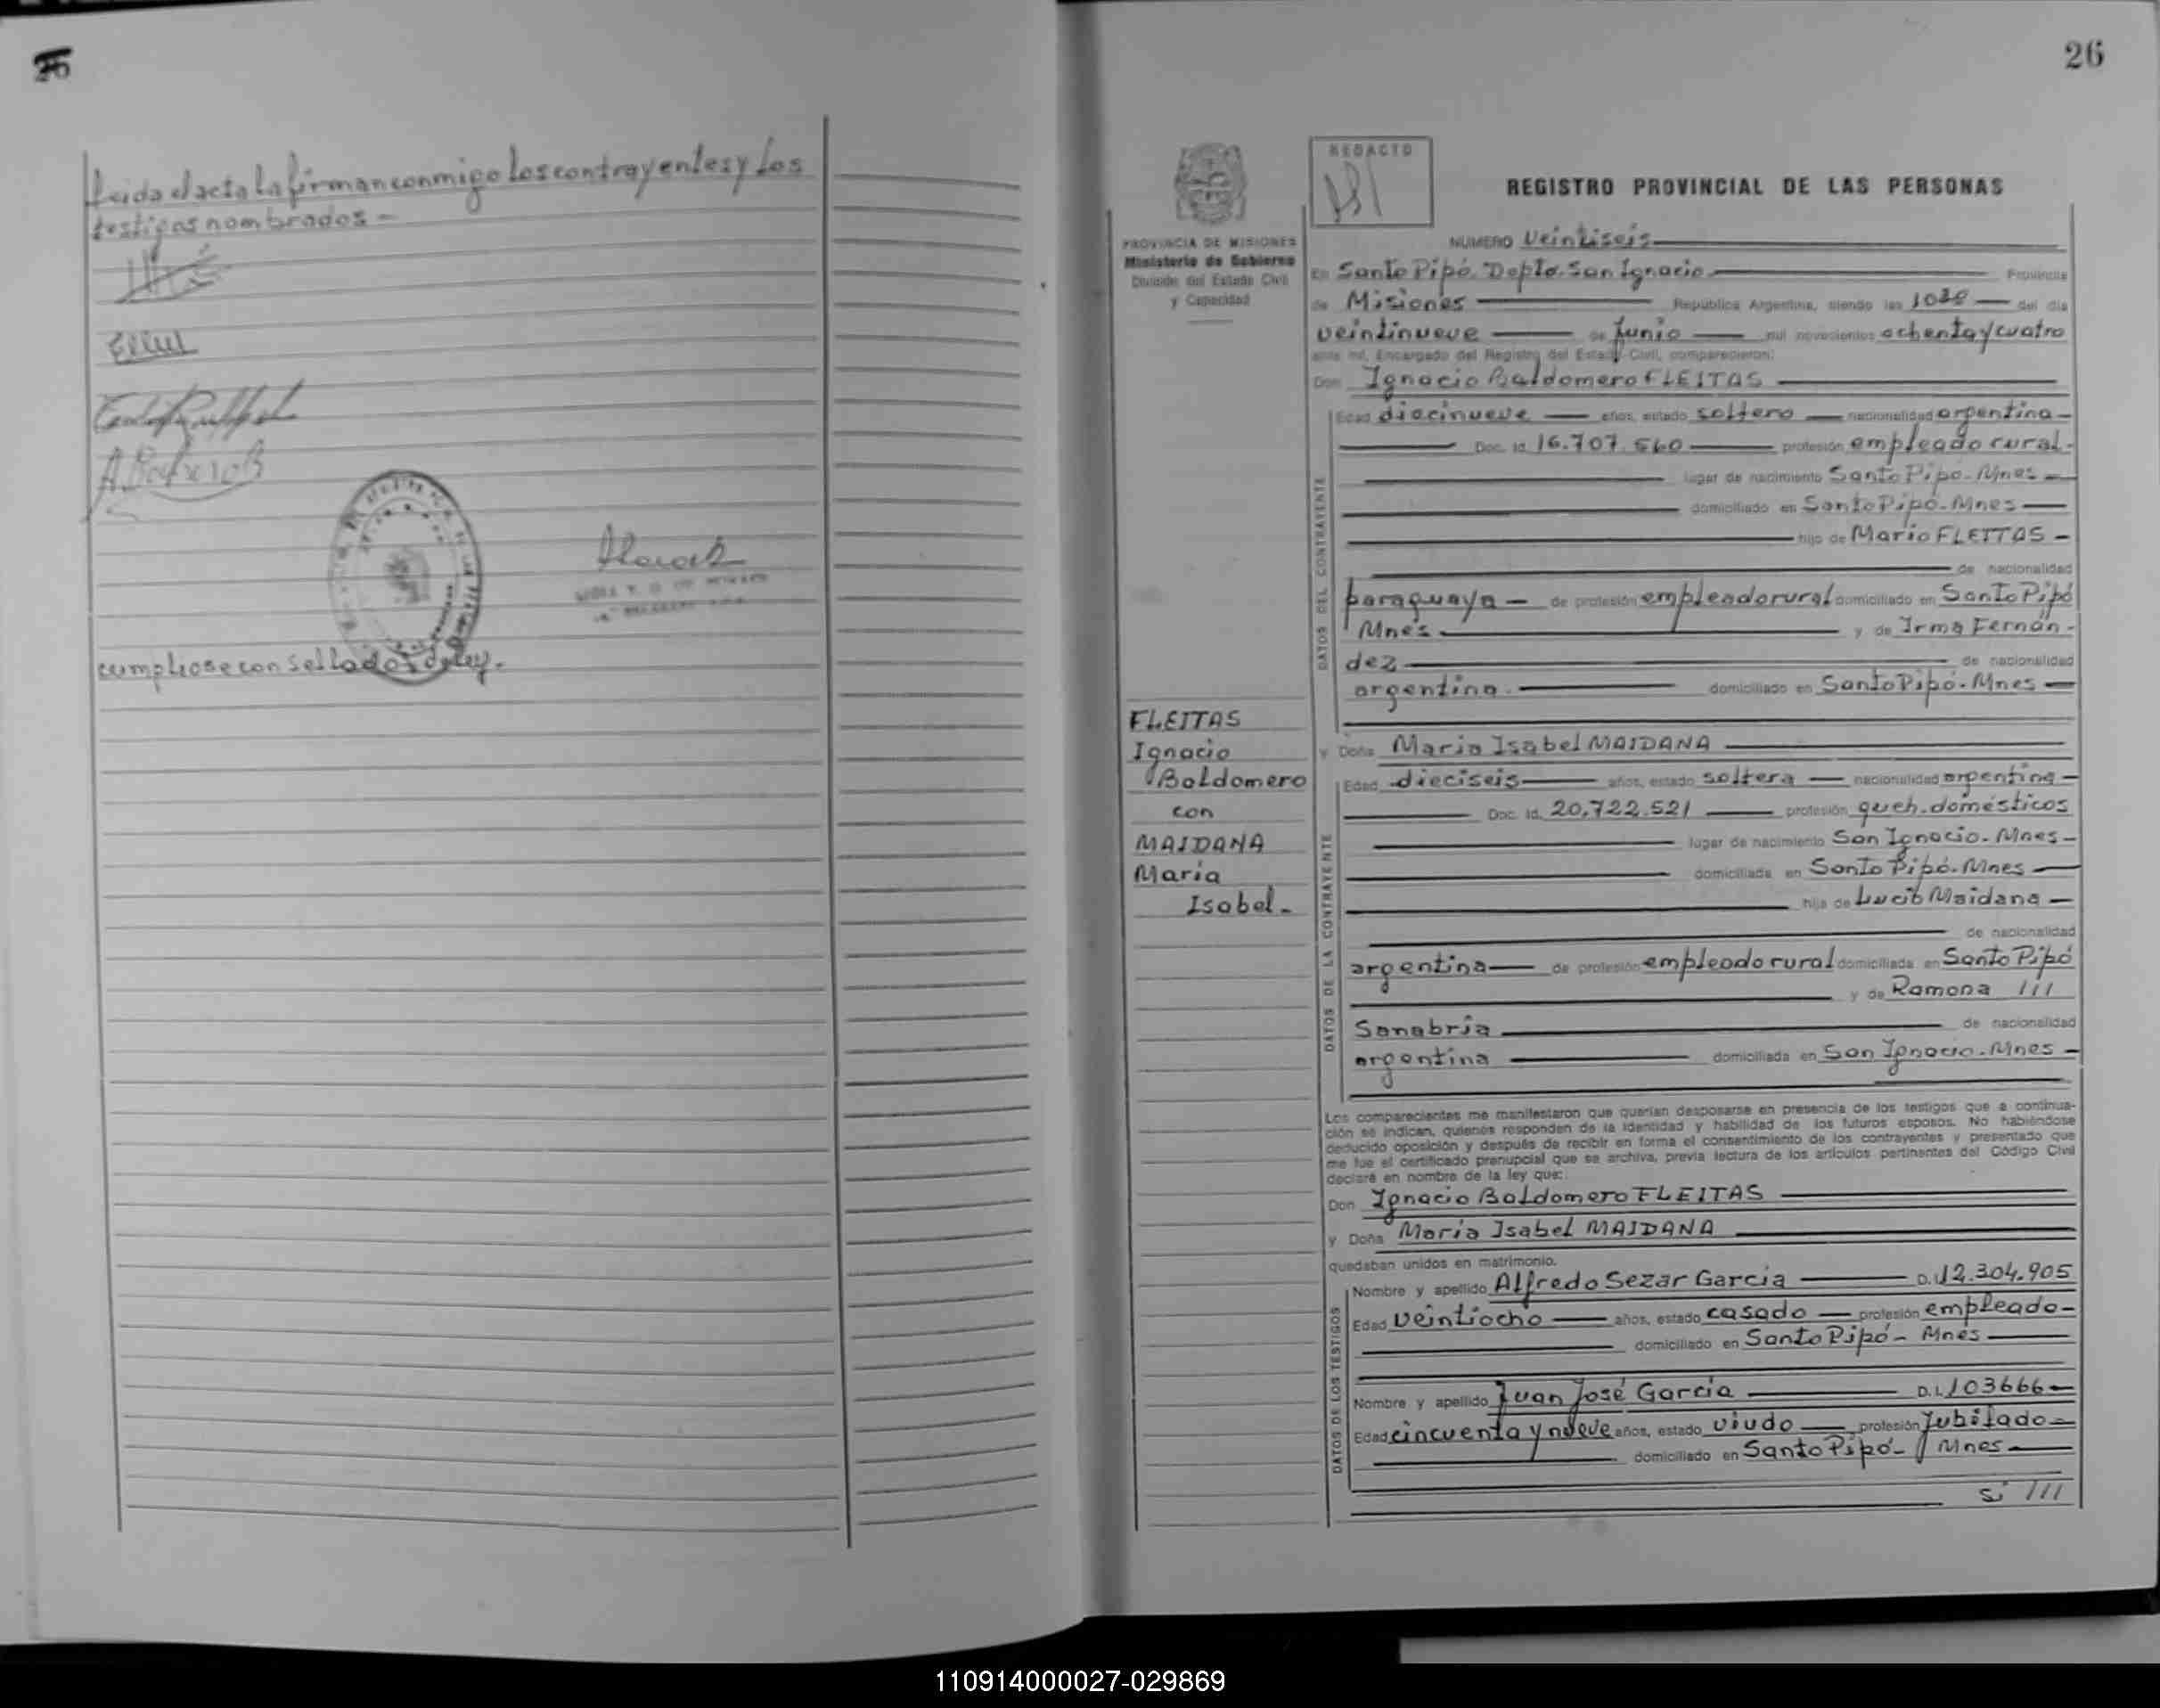 Leida el acta la firman conmigo los contrayentes y los
testigos nombrados -
cumpliose con sellados de ley.
26
REDACTO
REGISTRO PROVINCIAL DE LAS PERSONAS
PROVINCIA DE MISIONES
Ministerio de Gobierno
División del Estado Civil
y Capacidad
NUMERO Veintiseis
En Santo Pipó. Dpto. San Ignacio Provincia
de Misiones República Argentina, siendo las 1030 del día
veintinueve de Junio mil novecientos ochenta y cuatro
ante mí, Encargado del Registro del Estado Civil, comparecieron:
Don Ignacio Baldomero FLEITAS
DATOS DEL CONTRAYENTE
Edad diecinueve años, estado soltero nacionalidad argentina
Doc. Id. 16.707.560 profesión empleado rural.
lugar de nacimiento Santo Pipo-Mnes
domiciliado en Santo Pipó-Mnes
hijo de Mario FLEITAS
de nacionalidad
paraguaya de profesión empleado rural domiciliado en Santo Pipó
Mnes. y de Irma Fernán-
dez de nacionalidad
argentina. domiciliado en Santo Pipó-Mnes
FLEITAS
Ignacio
Baldomero
con
MAIDANA
María
Isabel-
y Doña Maria Isabel MAIDANA
DATOS DE LA CONTRAYENTE
Edad dieciseis años, estado soltera nacionalidad argentina
Doc. Id. 20.722.521 profesión queh. domésticos
lugar de nacimiento San Ignacio-Mnes-
domiciliada en Santo Pipó-Mnes
hija de Lucio Maidana
de nacionalidad
argentina de profesión empleado rural domiciliada en Santo Pipó
y de Ramona ///
Sanabria de nacionalidad
argentina domiciliada en San Ignacio-Mnes
Los comparecientes me manifestaron que querían desposarse en presencia de los testigos que a continua-
ción se indican, quienes responden de la identidad y habilidad de los futuros esposos. No habiéndose
deducido oposición y después de recibir en forma el consentimiento de los contrayentes y presentado que
me fue el certificado prenupcial que se archiva, previa lectura de los artículos pertinentes del Código Civil
declaré en nombre de la ley que:
Don Ignacio Baldomero FLEITAS
y Doña María Isabel MAIDANA
quedaban unidos en matrimonio.
DATOS DE LOS TESTIGOS
Nombre y apellido Alfredo Sezar Garcia D.I. 12.304.905
Edad Veintiocho años, estado casado profesión empleado-
domiciliado en Santo Pipó- Mnes
Nombre y apellido Juan José García D.I. 103666
Edad cincuenta y nueve años, estado viudo profesión Jubilado
domiciliado en Santo Pipó- Mnes
Si ///
110914000027-029869